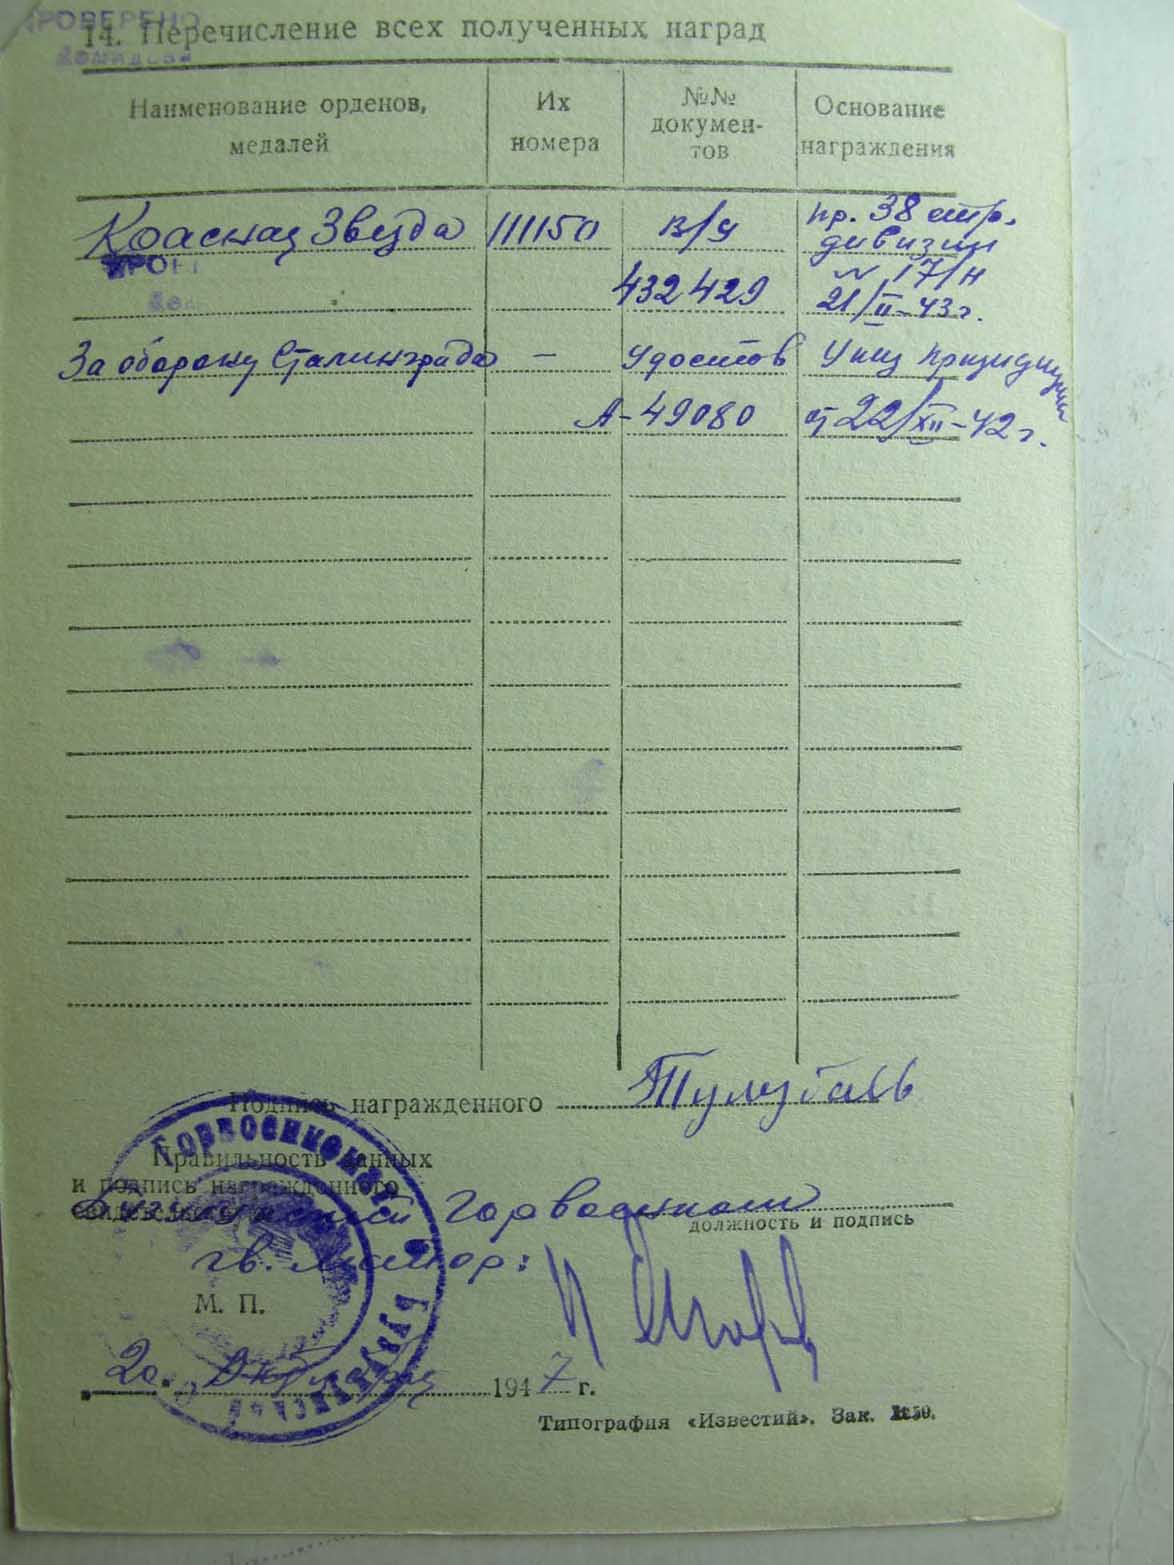 ПРОВЕРЕНО
14. Перечисление всех полученных наград
Наименование орденов, медалей
Их номера
№№ документов
Основание награждения
Красная Звезда 111150 в/у пр. 38 стр. дивизии
432429 № 17/н 21/II-43 г.
За оборону Сталинграда — Удостов Указ Президиума
А-49080 от 22/XII-42 г.
Подпись награжденного Тулузбаев
Правильность данных
и подпись награжденного
Горвоенком
должность и подпись
гв. майор:
М. П.
20. Октября 1947 г.
Типография «Известий». Зак.